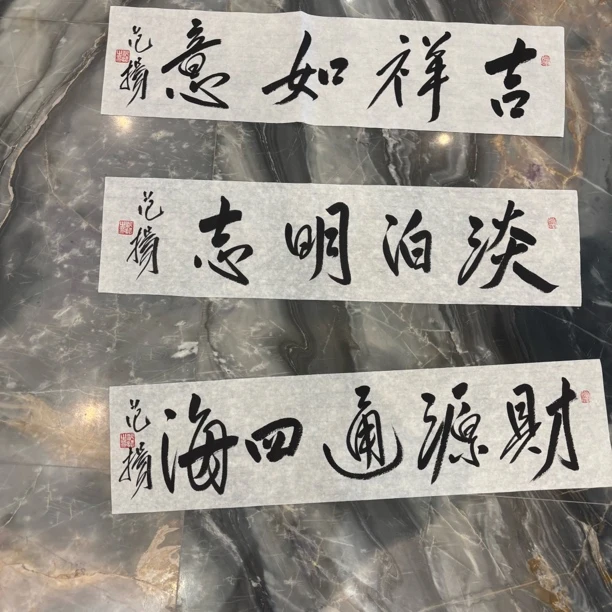 吉祥如意
范揚
淡泊明志
范揚
財源通四海
范揚